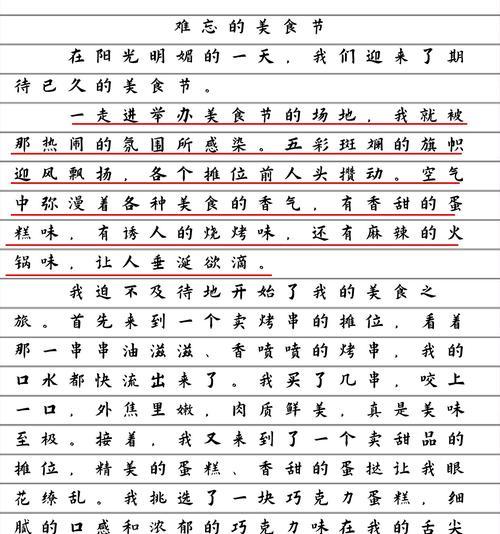 难忘的美食节
在阳光明媚的一天，我们迎来了期
待已久的美食节。
一走进举办美食节的场地，我就被
那热闹的氛围所感染。五彩斑斓的旗帜
迎风飘扬，各个摊位前人头攒动。空气
中弥漫着各种美食的香气，有香甜的蛋
糕味，有诱人的烧烤味，还有麻辣的火
锅味，让人垂涎欲滴。
我迫不及待地开始了我的美食之
旅。首先来到一个卖烤串的摊位，看着
那一串串油滋滋、香喷喷的烤串，我的
口水都快流出来了。我买了几串，咬上
一口，外焦里嫩，肉质鲜美，真是美味
至极。接着，我又来到了一个卖甜品的
摊位，精美的蛋糕、香甜的蛋挞让我眼
花缭乱。我挑选了一块巧克力蛋糕，细
腻的口感和浓郁的巧克力味在我的舌尖